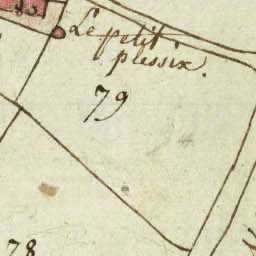 Le petit
plessix.
79
78